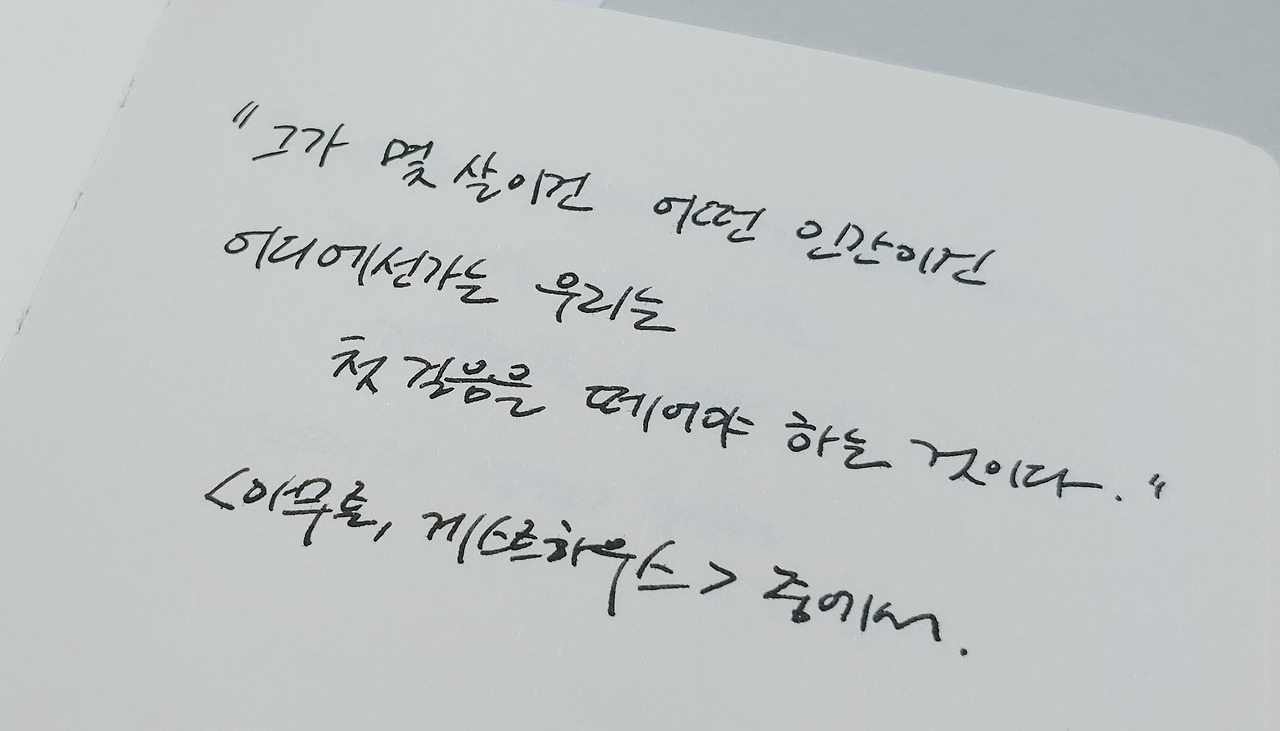 "그가 몇 살이건 어떤 인간이건
어디에선가는 우리는
첫 걸음을 떼어야 하는 것이다."
<아무튼, 게스트하우스> 중에서.